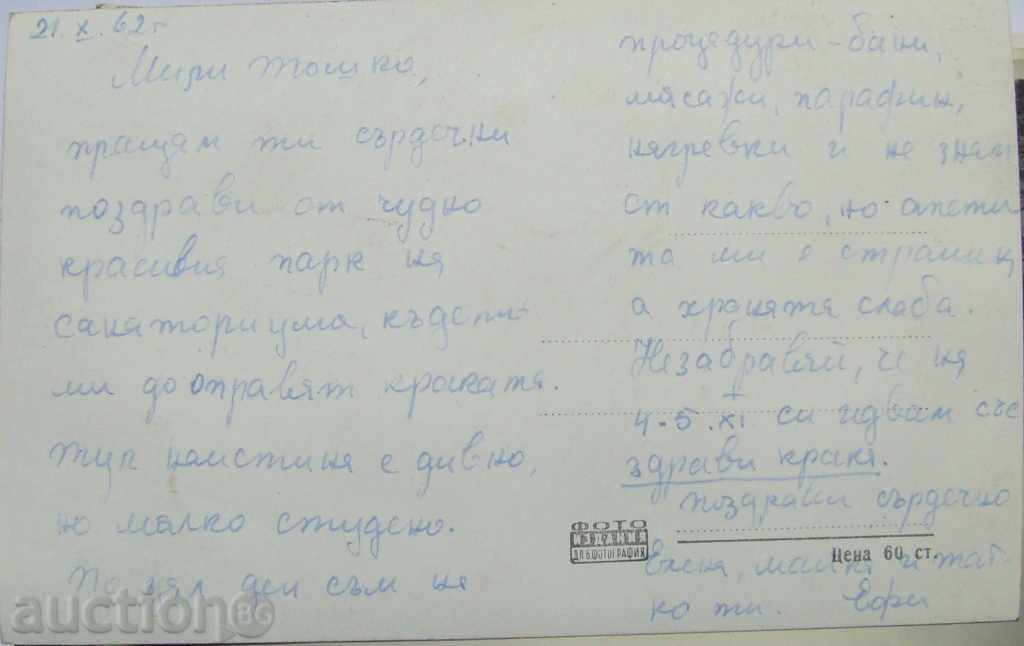 21.X.62г
Мили Тошко,
пращам ти сърдечни
поздрави от чудно
красивия парк на
санаториума, където
ми дооправят краката.
Тук наистина е дивно,
но малко студено.
По цял ден съм на
процедури - бани,
масажи, парафин,
нагревки и не знам
от какво, но апети
та ми е страшен,
а храната слаба.
Незабравяй, че на
4-5.XI си идвам със
здрави крака.
Поздрави сърдечно
майка и тат-
ко ти. Ефи
ФОТО
ИЗДАНИЕ
ДК БЪЛФОТОГРАФИЯ
Цена 60 ст.
auction86